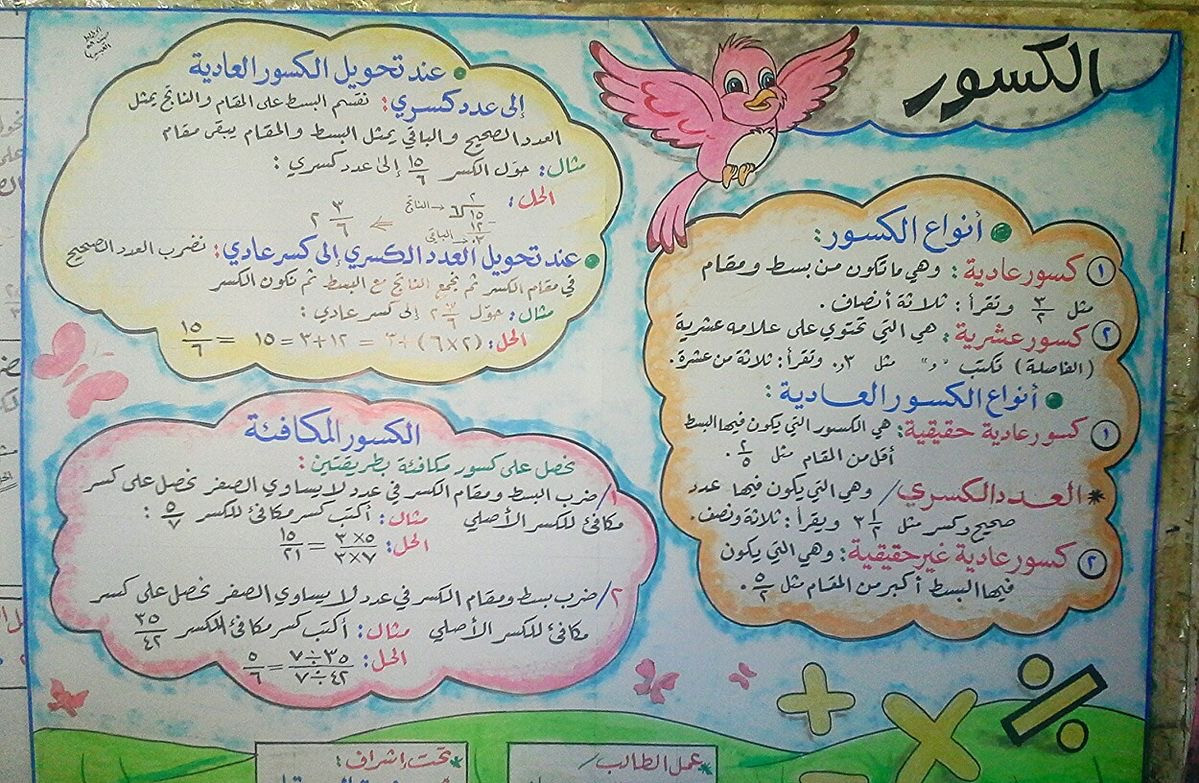 الكسور
● أنواع الكسور:
١ كسور عادية: وهي ما تكون من بسط ومقام
مثل ٣/٢ وتقرأ: ثلاثة أنصاف.
٢ كسور عشرية: هي التي تحتوي على علامه عشرية
(الفاصلة) تكتب "و" مثل ٣و. وتقرأ: ثلاثة من عشرة.
● أنواع الكسور العادية:
١ كسور عادية حقيقية: هي الكسور التي يكون فيها البسط
أقل من المقام مثل ٢/٥.
* العدد الكسري/ وهي التي يكون فيها عدد
صحيح وكسر مثل ٣ ١/٢ ويقرأ: ثلاثة ونصف.
٢ كسور عادية غير حقيقية: وهي التي يكون
فيها البسط أكبر من المقام مثل ٥/٢.
● عند تحويل الكسور العادية
إلى عدد كسري: نقسم البسط على المقام والناتج يمثل
العدد الصحيح والباقي يمثل البسط والمقام يبقى مقام
مثال: حوّل الكسر ١٥/٦ إلى عدد كسري:
الحل: ٢ ← الناتج
٦ ١٥
١٢
٣ ← الباقي
٢ ٣/٦
● عند تحويل العدد الكسري إلى كسر عادي: نضرب العدد الصحيح
في مقام الكسر ثم نجمع الناتج مع البسط ثم نكون الكسر
مثال: حوّل ٢ ٣/٦ إلى كسر عادي:
الحل: (٢×٦)+٣ = ١٢+٣ = ١٥ = ١٥/٦
الكسور المكافئة
نحصل على كسور مكافئة بطريقتين:
١/ ضرب البسط ومقام الكسر في عدد لا يساوي الصفر نحصل على كسر
مكافئ للكسر الأصلي مثال: أكتب كسر مكافئ للكسر ٥/٧:
الحل: ٥×٣/٧×٣ = ١٥/٢١
٢/ ضرب بسط ومقام الكسر في عدد لا يساوي الصفر نحصل على كسر
مكافئ للكسر الأصلي مثال: أكتب كسر مكافئ للكسر ٣٥/٤٢
الحل: ٣٥÷٧/٤٢÷٧ = ٥/٦
* عمل الطالب/
* تحت اشراف: